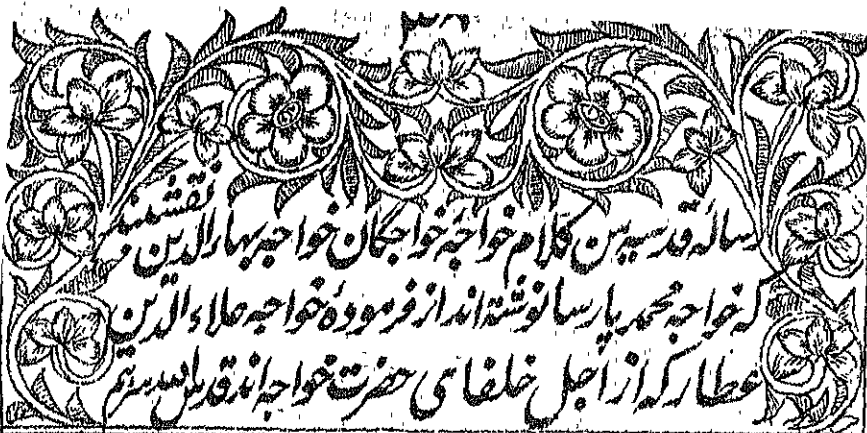 رسالهٔ قدسیه من کلام خواجهٔ خواجگان خواجه بهاء الدین نقشبند
که خواجه محمد پارسا نوشته اند از فرمودهٔ خواجه علاء الدین
عطار که از اجل خلفای حضرت خواجه اند قدس الله سرهم